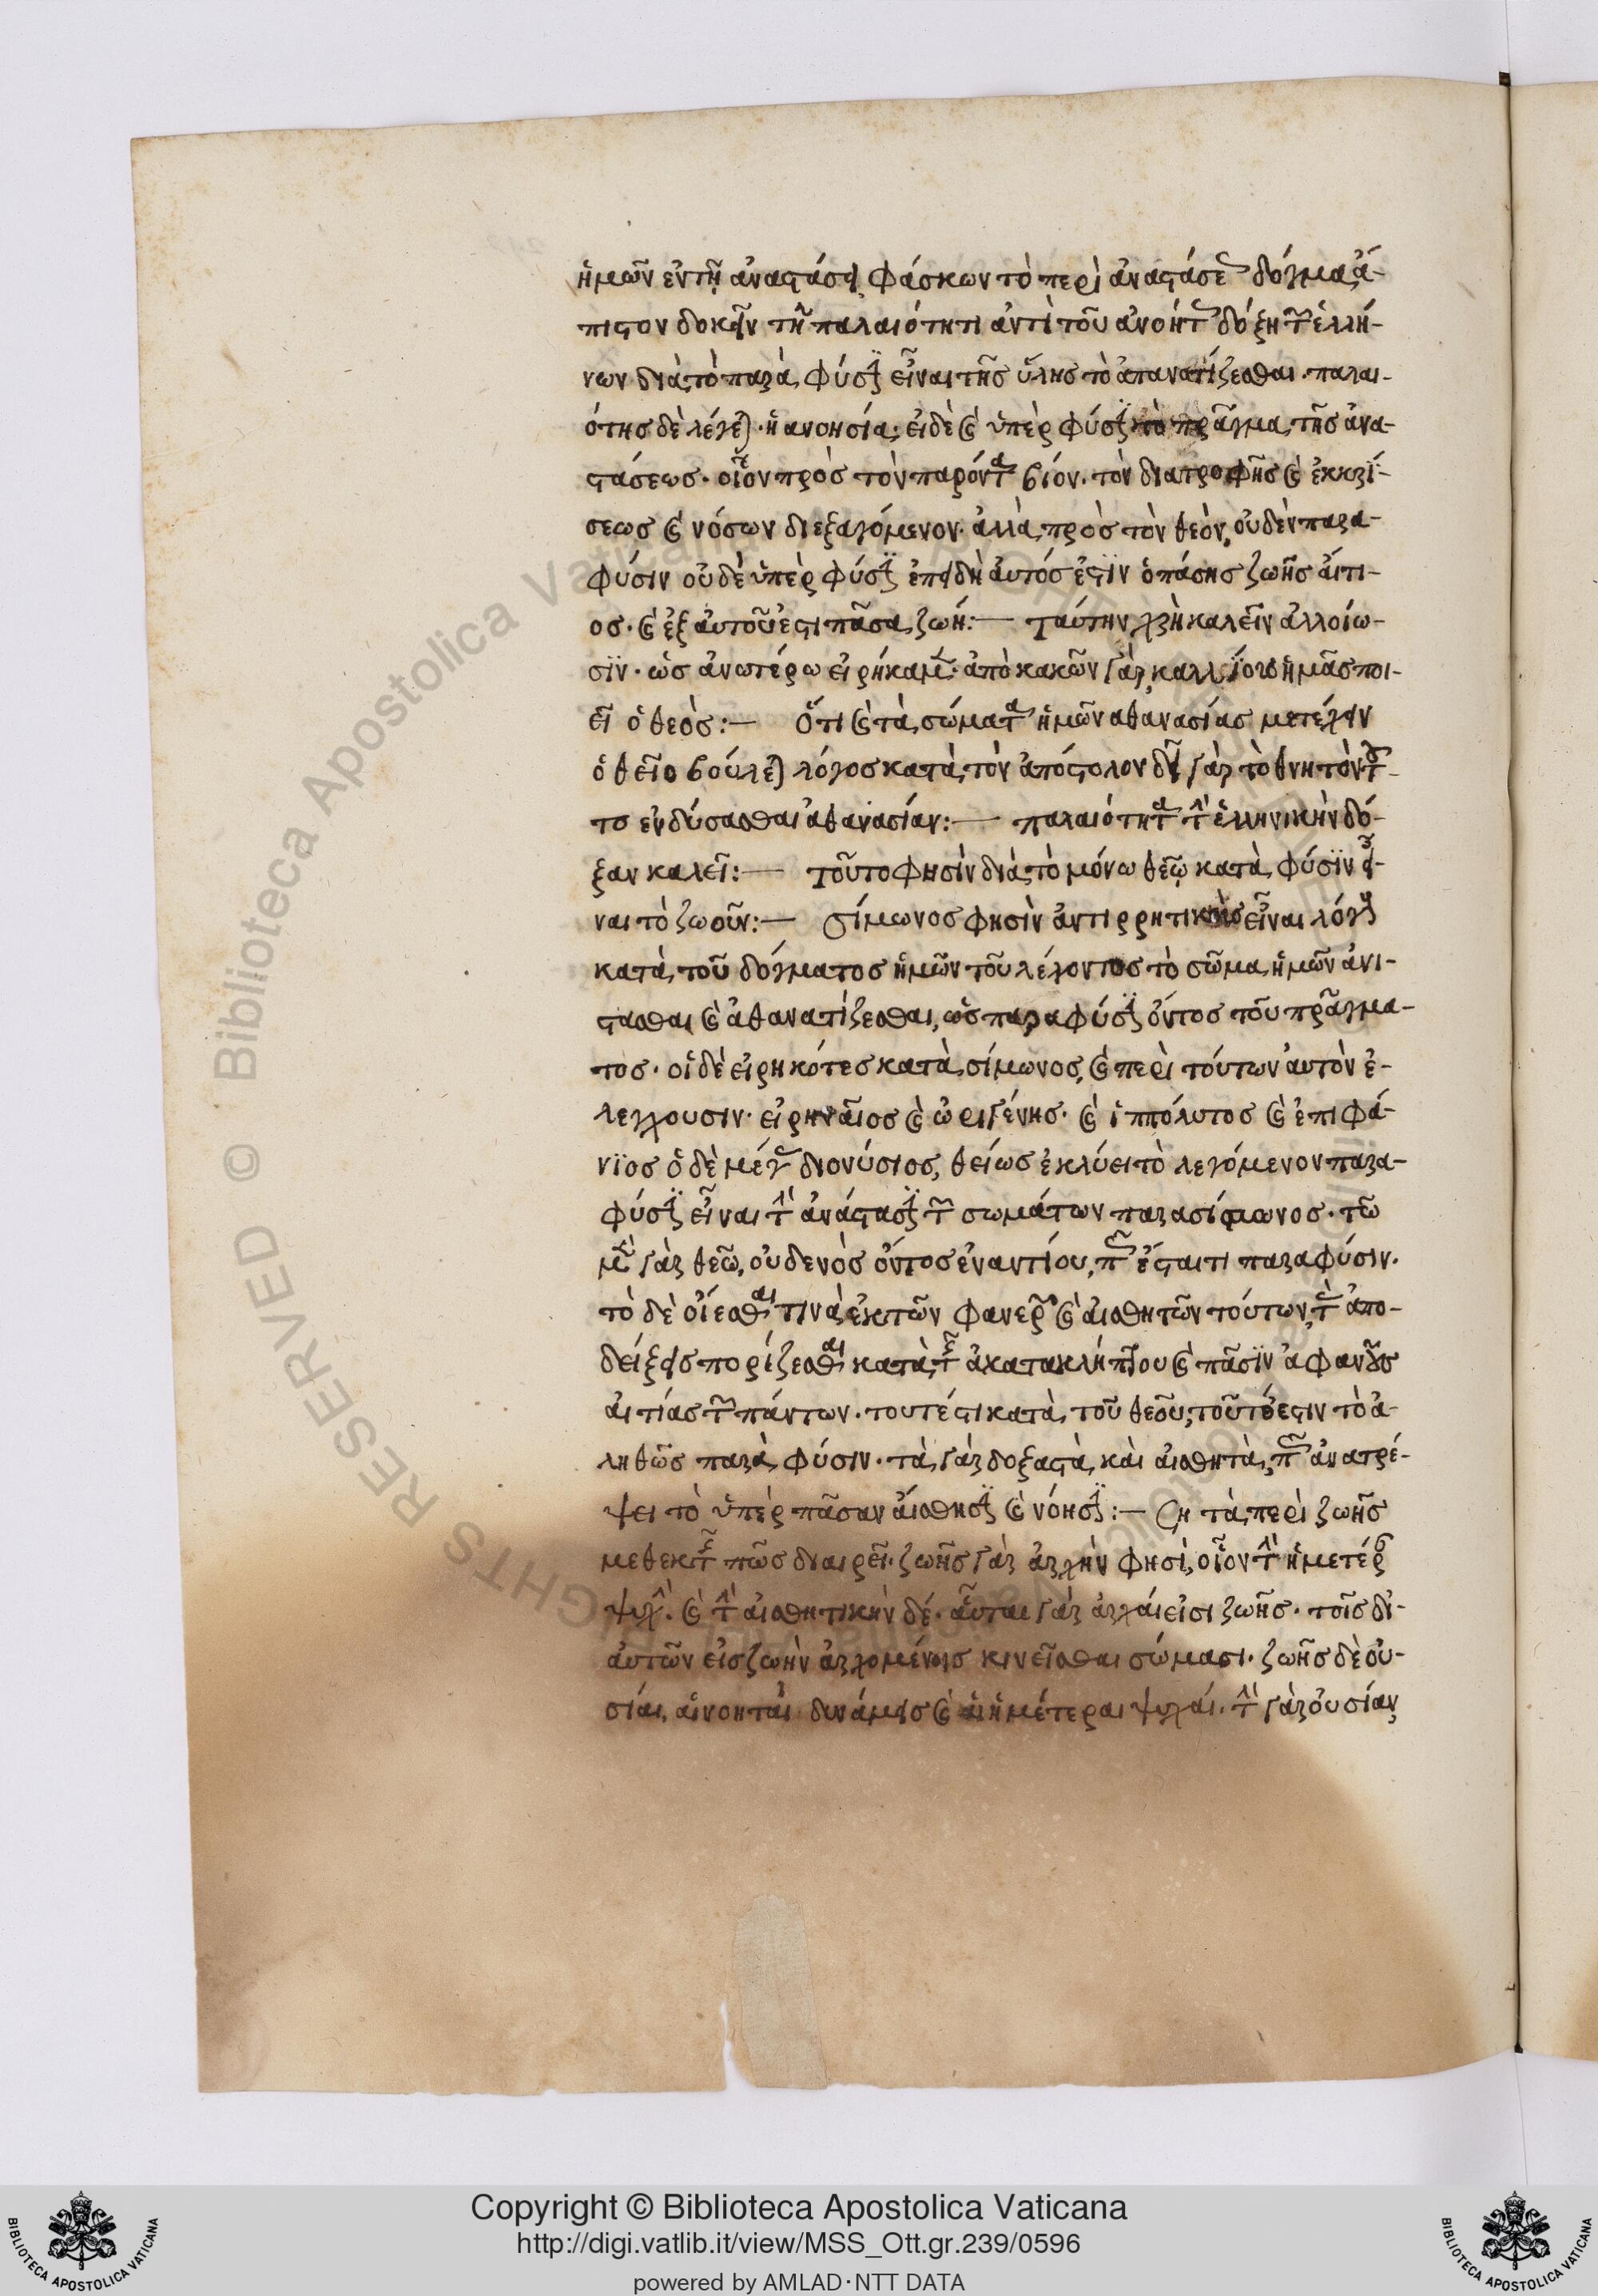 ἡμῶν ἐν τῇ ἀναστάσει, φάσκων τὸ περὶ ἀναστάσεως δόγμα, ἄ-
πιστον δοκεῖν τῇ παλαιότητι ἀντὶ τοῦ ἀνοήτω δόξῃ τῶν ἑλλή-
νων διὰ τὸ παρὰ φύσιν εἶναι τῆς ὕλης τὸ ἀπανατίζεσθαι. παλαι-
ότης δὲ λέγεται. ἡ ἀνοησία. εἰ δὲ καὶ ὑπὲρ φύσιν τὸ πρᾶγμα τῆς ἀνα-
στάσεως. οἷον πρὸς τὸν παρόντα βίον. τὸν διατροφῆς καὶ ἐκκρί-
σεως καὶ νόσων διεξαγόμενον. ἀλλὰ πρὸς τὸν θεὸν, οὐδὲν παρα-
φύσιν οὐδὲ ὑπὲρ φύσιν ἐπειδὴ αὐτός ἐστϊν ὁ πάσης ζωῆς αἴτι-
ος. καὶ ἐξ αὐτοῦ ἐστι πᾶσα ζωή:— ταύτην χρὴ καλεῖν ἀλλοίω-
σϊν. ὡς ἀνωτέρω εἰρήκαμεν. ἀπὸ κακῶν γὰρ, καλλίους ἡμᾶς ποι-
εῖ ὁ θεός:— Ὅτι καὶ τὰ σώματα ἡμῶν ἀθανασίας μετέχειν
ὁ θεῖο βούλεται λόγος κατὰ τὸν ἀπόστολον δεῖ γὰρ τὸ θνητὸν τοῦ-
το ἐνδύσασθαι ἀθανασίαν:— παλαιότητα τὴν ἑλληνικὴν δό-
ξαν καλεῖ:— τοῦτο φησὶν διὰ τὸ μόνω θεῷ κατὰ φύσϊν εἶ-
ναι τὸ ζωοῦν:— Σίμωνος φησὶν ἀντιρρητικοὺς εἶναι λόγους
κατὰ τοῦ δόγματος ἡμῶν τοῦ λέγοντος τὸ σῶμα ἡμῶν ἀνί-
στασθαι καὶ ἀθανατίζεσθαι, ὡς παρα φύσιν ὄντος τοῦ πράγμα-
τος. οἱ δὲ εἰρηκότες κατὰ σίμωνος, καὶ περὶ τούτων αὐτὸν ἐ-
λεγχουσιν. εἰρηναῖος καὶ ὠριγένης. καὶ ἱππόλυτος καὶ ἐπιφά-
νϊος ὁ δὲ μέγας διονύσιος, θείως ἐκλύει τὸ λεγόμενον παρα-
φύσιν εἶναι τὴν ἀνάστασιν τῶν σωμάτων παρα σίμωνος. τῶ
μὲν γὰρ θεῶ, οὐδενὸς ὄντος ἐναντίου, πῶς ἔσται τι παρα φύσιν.
τὸ δὲ οἴεσθαι τινὰ ἐκ τῶν φανερῶν καὶ αἰσθητῶν τούτων, τὰς ἀπο-
δείξεις πορίζεσθαι κατὰ τῆς ἀκαταλήπτου καὶ πᾶσϊν ἀφανοῦς
αἰτίας τῶν πάντων. τουτέστι κατὰ τοῦ θεοῦ, τοῦτό ἐστιν τὸ ἀ-
ληθῶς παρὰ φύσιν. τὰ γὰρ δοξαστὰ καὶ αἰσθητὰ, πῶς ἀνατρέ-
ψει τὸ ὑπὲρ πᾶσαν αἴσθησιν καὶ νόησιν:— Ση τὰ περὶ ζωῆς
μεθεκτῆς πῶς διαιρεῖ. ζωῆς γὰρ ἀρχὴν φησὶ, οἷον τὴν ἡμετέρ
ψυχὴν. καὶ τὴν αἰσθητικὴν δέ. αὗται γὰρ ἀρχαί εἰσι ζωῆς. τοῖς δι-
αὐτῶν εἰς ζωὴν ἀρχομένοις κινεῖσθαι σώμασι. ζωῆς δὲ οὐ-
σίαι, αἱ νοηταὶ δυνάμεις καὶ αἱ ἡμέτεραι ψυχαί. τὴν γὰρ οὐσίαν
Copyright © Biblioteca Apostolica Vaticana
http://digi.vatlib.it/view/MSS_Ott.gr.239/0596
powered by AMLAD·NTT DATA